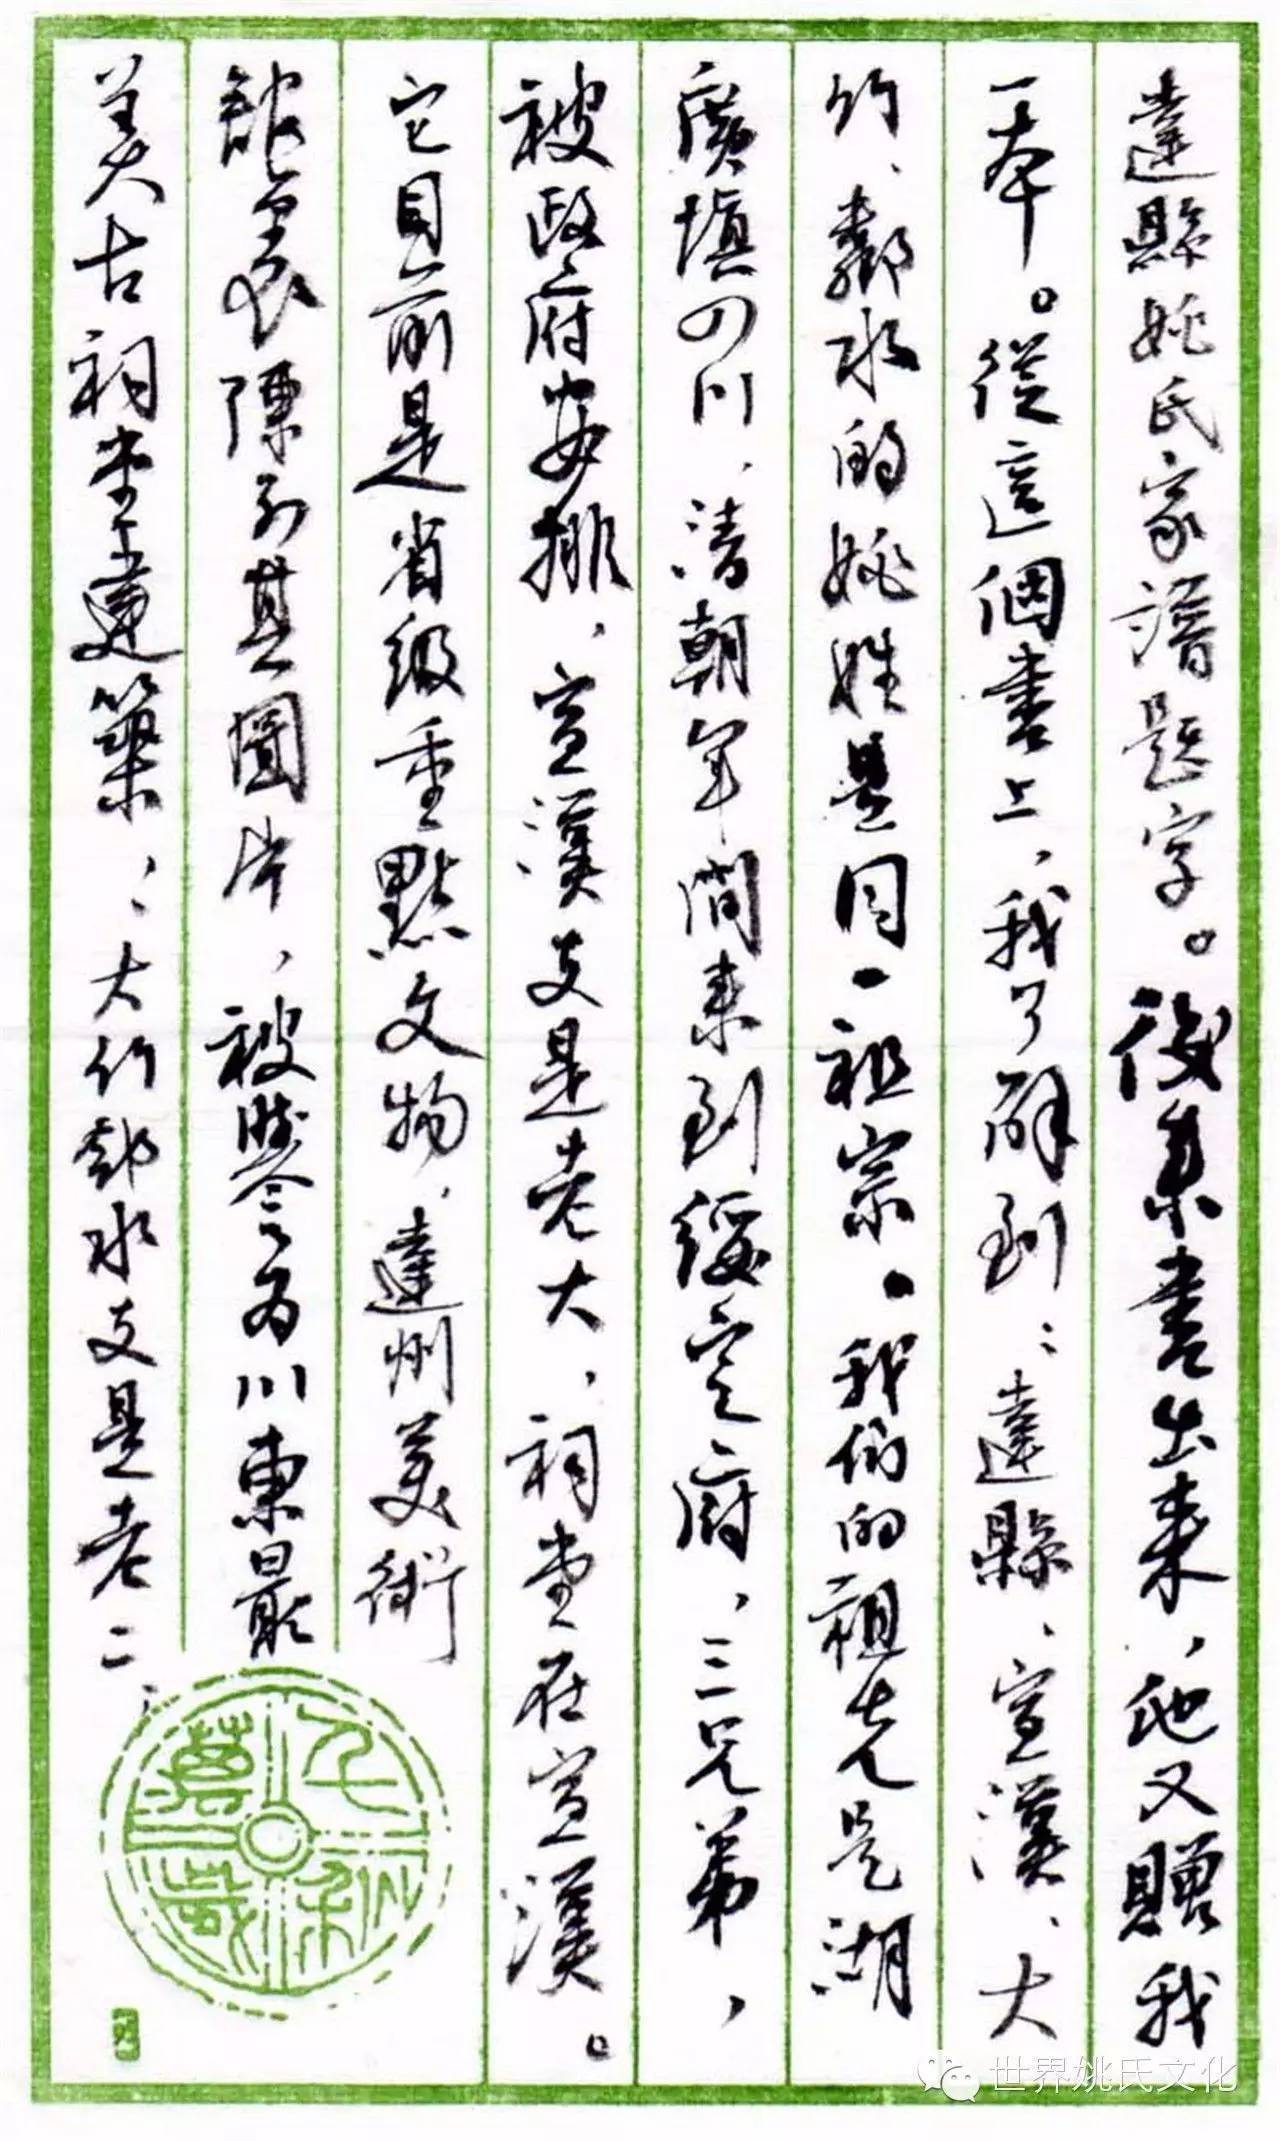 達縣姚氏家譜題字。後來書出來，他又贈我
一本。從這個書上，我了解到：達縣、宣漢、大
竹、鄰水的姚姓是同一祖宗。我們的祖先是湖
廣填四川，清朝年間來到綏定府，三兄弟，
被政府安排，宣漢支是老大，祠堂在宣漢。
它目前是省級重點文物，達州美術
館展陳列其圖片，被譽為川東最
美古祠堂建築，大竹鄰水支是老二，
世界姚氏文化